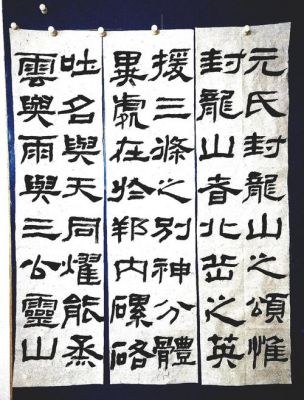 元氏封龍山之頌惟
封龍山者北岳之英
援三條之別神分體
異處在於邦內磥硌
吐名與天同燿能烝
雲與雨與三公靈山